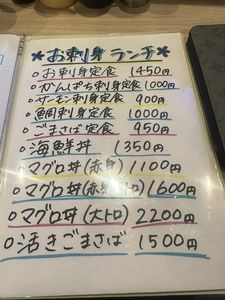 *お刺身ランチ*
○お刺身定食 1450円
○かんぱち刺身定食 1000円
○サーモン刺身定食 900円
○魚周刺身定食 1000円
○ごまさば定食 950円
○海鮮丼 1350円
○マグロ丼(赤身) 1100円
○マグロ丼(赤身 トロ) 1600円
○マグロ丼(大トロ) 2200円
○活きごまさば 1500円